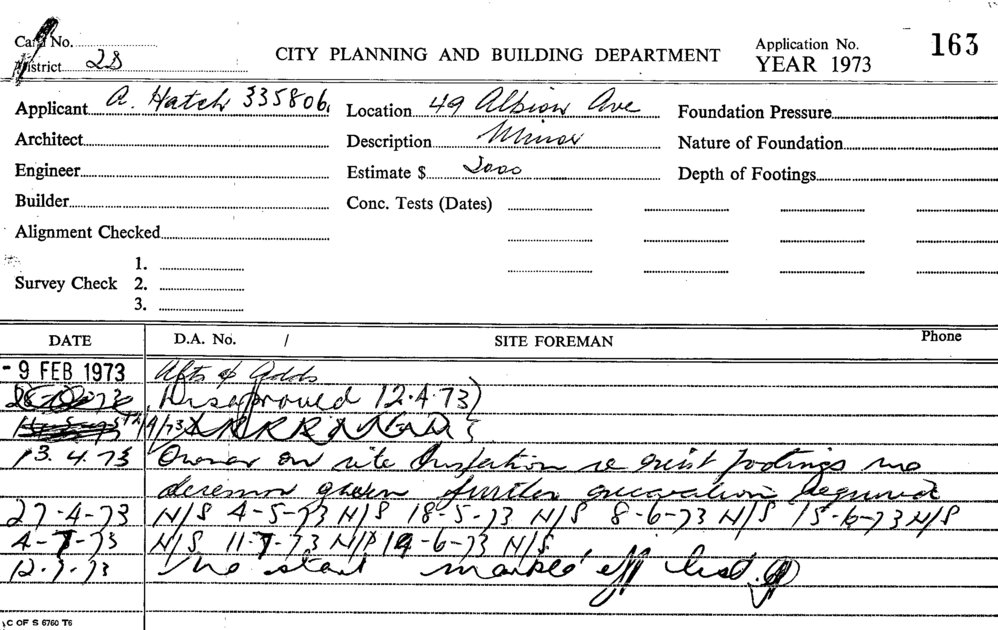 Card No.
CITY PLANNING AND BUILDING DEPARTMENT
Application No. 163
District 28
YEAR 1973
Applicant A. Hatch 335806
Location 49 Albion Ave
Foundation Pressure
Architect
Description Minor
Nature of Foundation
Engineer
Estimate $
Depth of Footings
Builder
Conc. Tests (Dates)
Alignment Checked
1.
Survey Check 2.
3.
DATE D.A. No. / SITE FOREMAN Phone
- 9 FEB 1973 Alts & Adds
Disapproved 12.4.73
13.4.73 Owner on site Inspection re exist footings no
decision given further excavation required
27-4-73 N/S 4-5-73 N/S 18-5-73 N/S 8-6-73 N/S 15-6-73 N/S
4-7-73 N/S 11-7-73 N/S
12-7-73 No start marked off list
C OF S 6760 T6